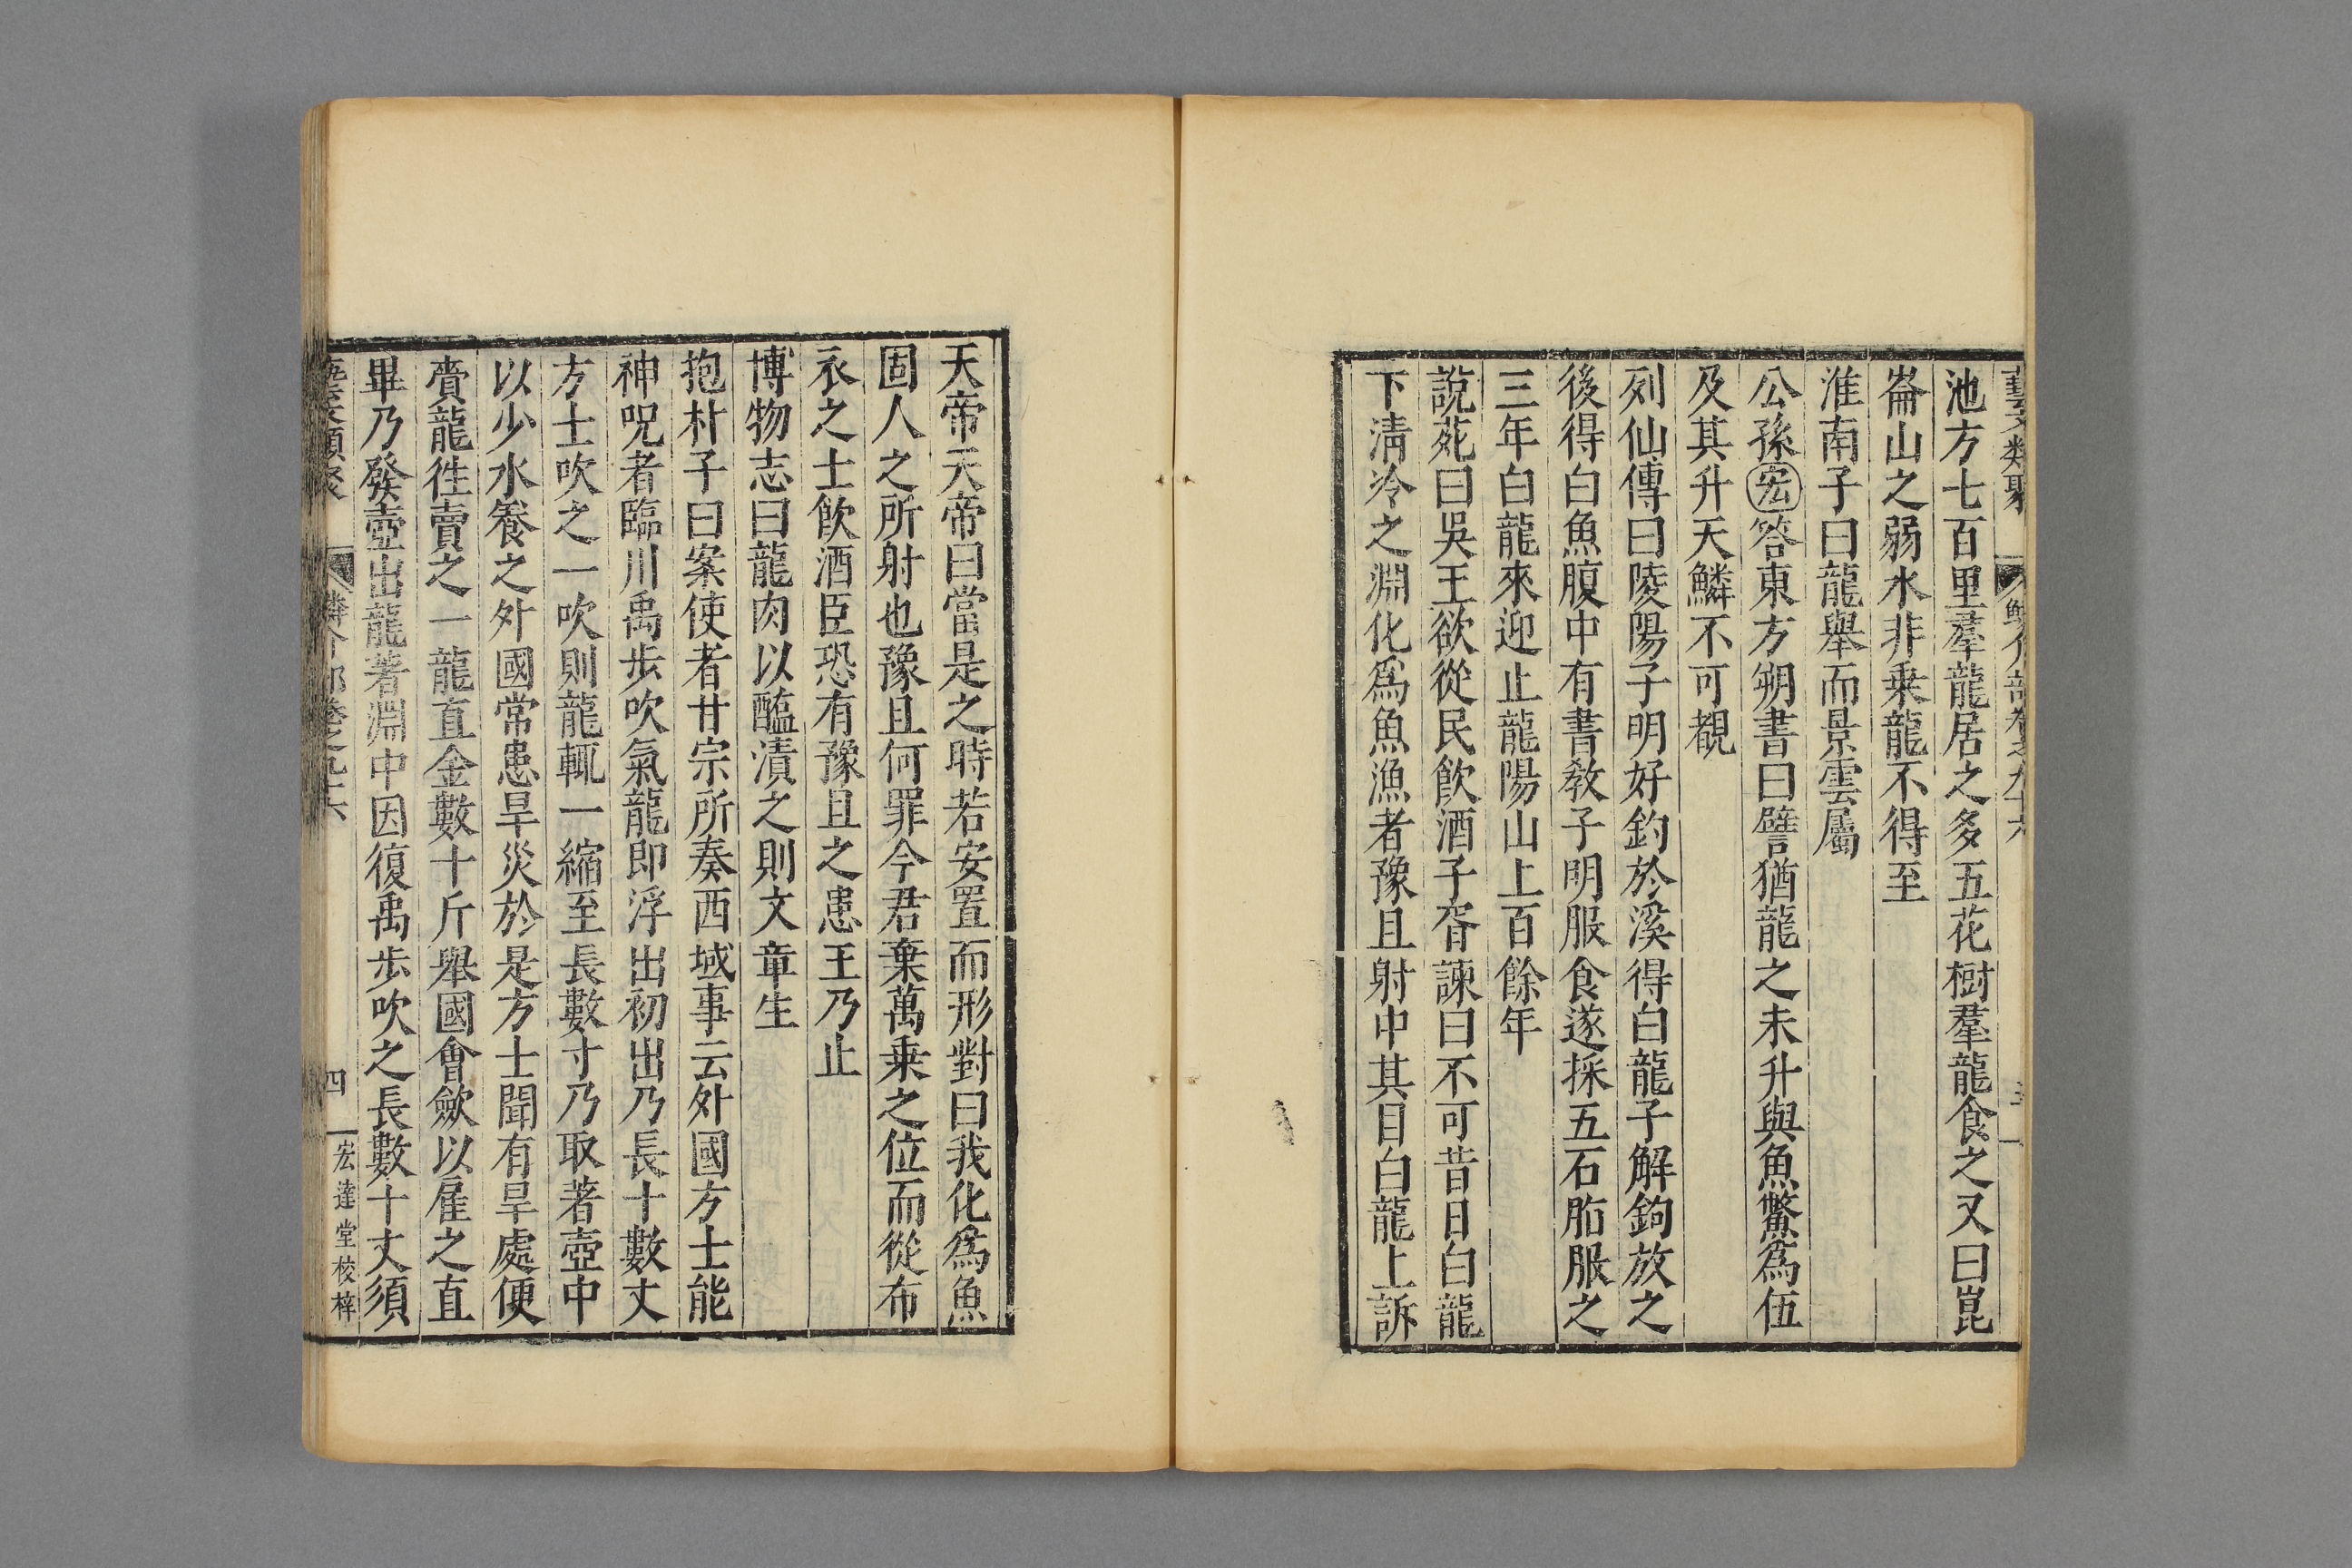 藝文類聚 鱗介部卷之九十六 三
池方七百里羣龍居之多五花樹羣龍食之又曰崑
崙山之弱水非乗龍不得至
淮南子曰龍舉而景雲屬
公孫宏答東方朔書曰譬猶龍之未升與魚鱉爲伍
及其升天鱗不可覩
列仙傳曰陵陽子明好釣於溪得白龍子解鉤放之
後得白魚腹中有書教子明服食遂採五石脂服之
三年白龍來迎止龍陽山上百餘年
說苑曰吳王欲從民飲酒子胥諫曰不可昔日白龍
下淸泠之淵化爲魚漁者豫且射中其目白龍上訴
天帝天帝曰當是之時若安置而形對曰我化爲魚
固人之所射也豫且何罪今君棄萬乗之位而從布
衣之士飲酒臣恐有豫且之患王乃止
博物志曰龍肉以醢漬之則文章生
抱朴子曰案使者甘宗所奏西域事云外國方士能
神呪者臨川禹步吹氣龍即浮出初出乃長十數丈
方士吹之一吹則龍輒一縮至長數寸乃取著壺中
以少水養之外國常患旱災於是方士聞有旱處便
賷龍徃賣之一龍直金數十斤舉國會斂以雇之直
畢乃發壺出龍著淵中因復禹步吹之長數十丈須
藝文類聚 鱗介部卷之九十六 四 宏達堂校梓